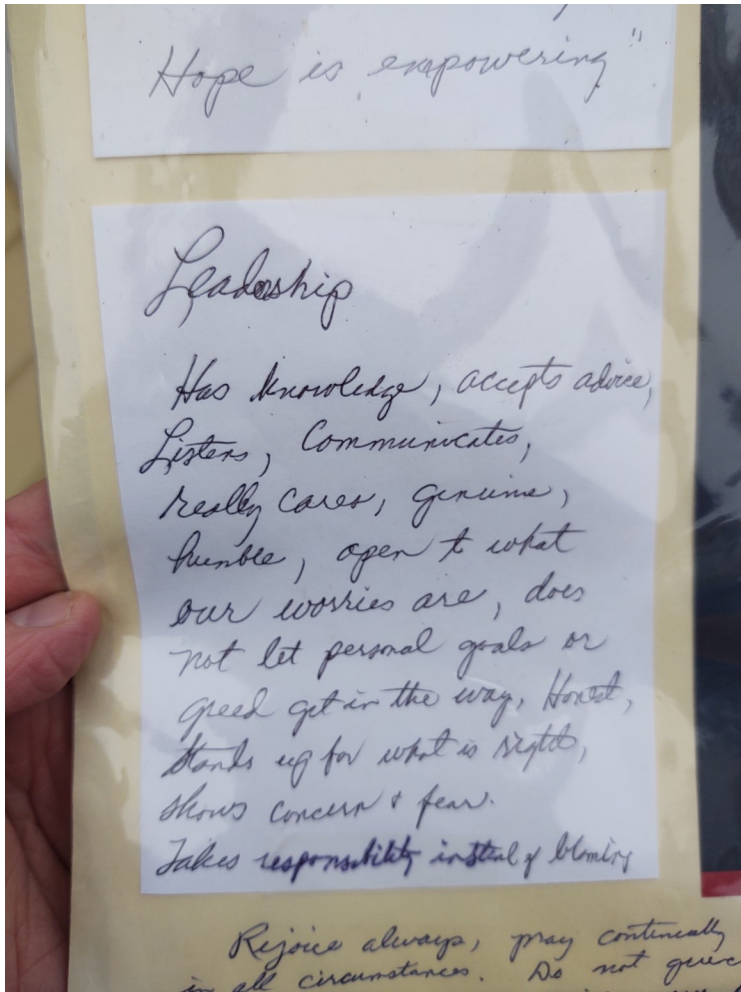 Hope is empowering"
Leadership
Has knowledge, accepts advice,
Listens, Communicates,
really cares, genuine,
humble, open to what
our worries are, does
not let personal goals or
greed get in the way, Honest,
stands up for what is right,
shows concern & fear.
Takes responsibility instead of blaming
Rejoice always, pray continually
in all circumstances. Do not